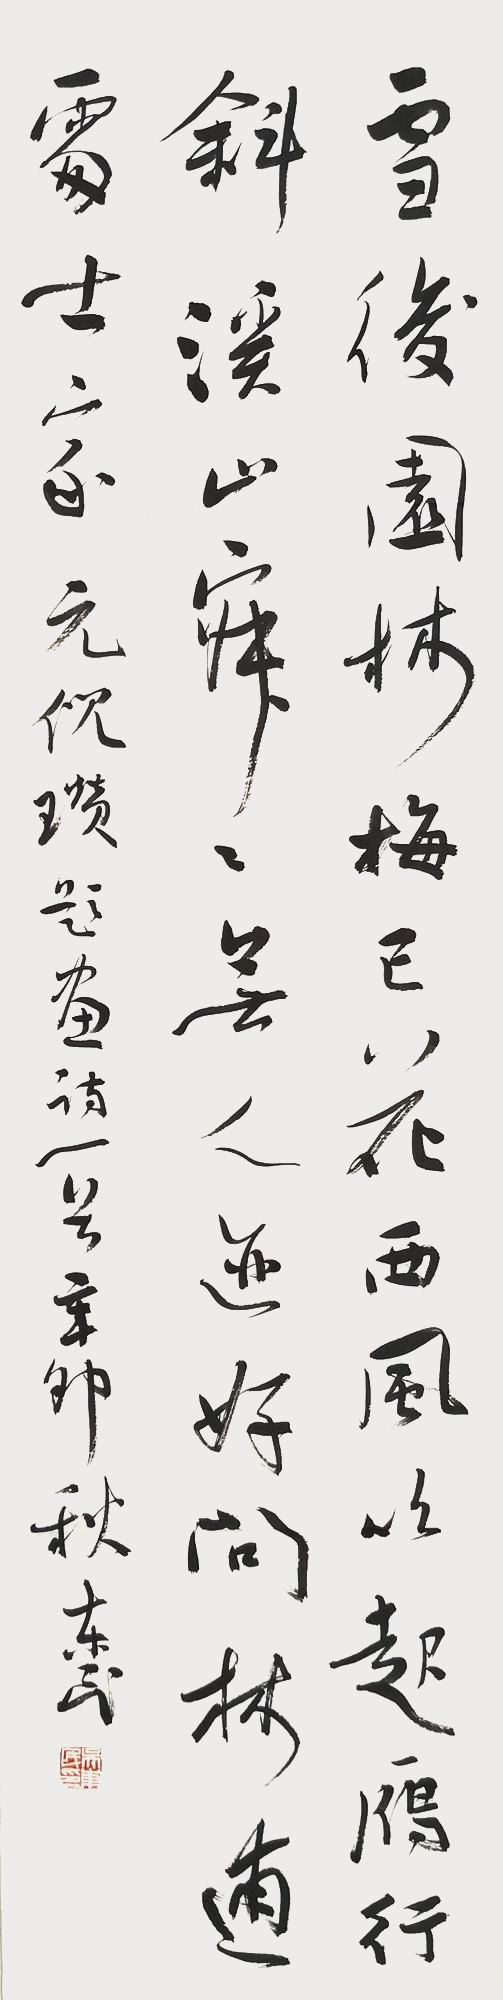 雪後園林梅已花西風吹起鴈行
斜溪山寂〻無人迹好問林逋
處士家 元倪瓚題畫詩一首辛卯秋東民
吳東民印